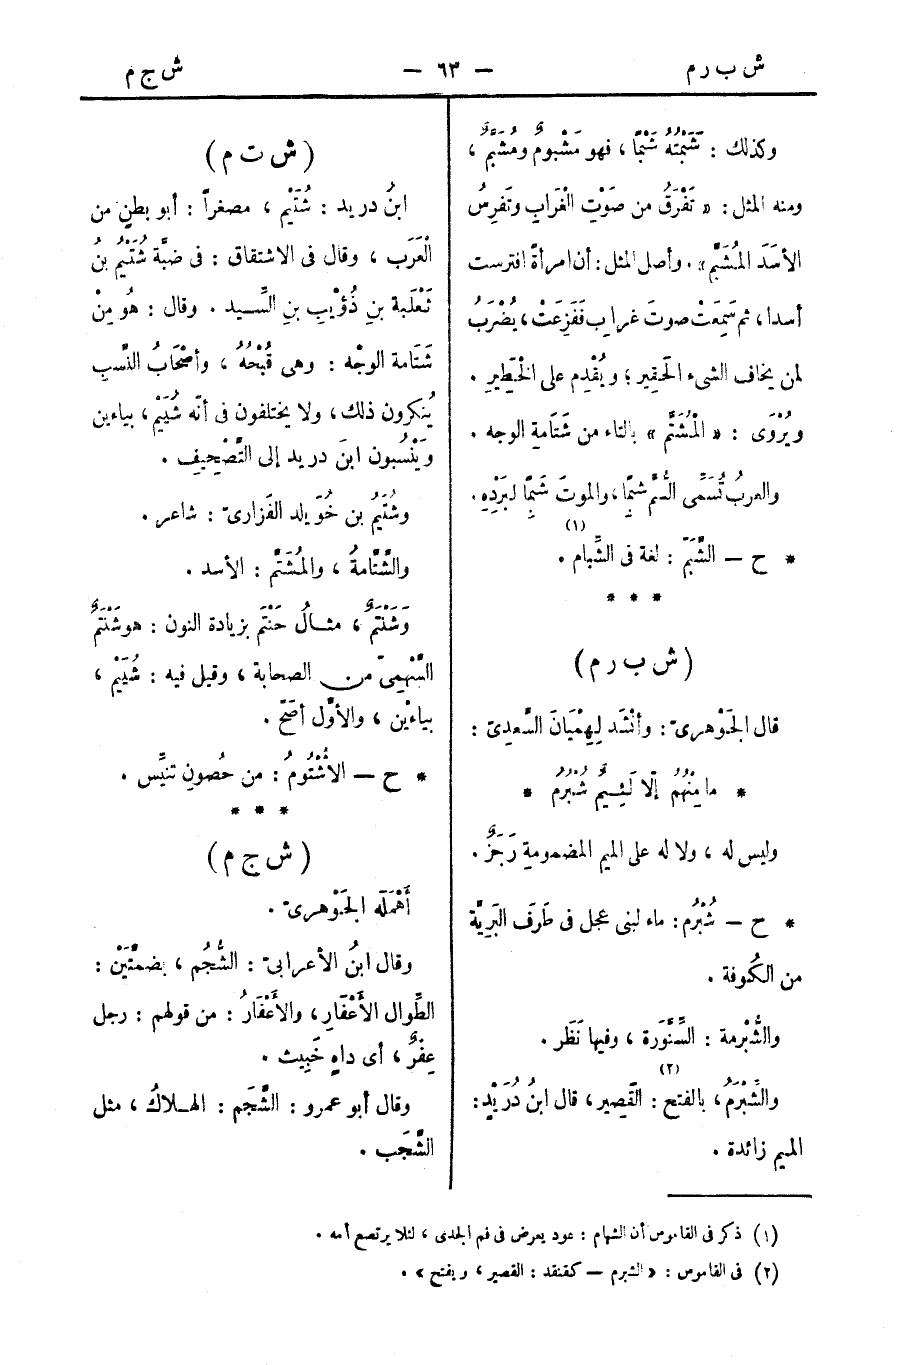 ش ب ر م
— ٦٣ —
ش ج م
وكذلك : شَبَمْتُهُ شَبْمًا ، فهو مَشْبُومٌ ومُشَبَّمٌ ،
ومنه المثل : « تَفْرَقُ من صَوْتِ الغُرَابِ وتَفْرِسُ
الأَسَدَ المُشَبَّمَ» . وأصل المثل : أن امرأةً افترست
أسدا ، ثم سَمِعَتْ صوتَ غرابٍ فَفَزِعَتْ ، يُضْرَبُ
لمن يخاف الشىء الحَقِير ؛ ويُقْدِم على الخَطِيرِ .
ويُرْوَى : « المُشَتَّم » بالتاء من شَتَامَةِ الوجه .
والعربُ تُسَمِّى السُّمَّ شَبِمًا ، والموتَ شَبِمًا لِبَرْدِهِ .
* ح — الشَّبَمُ : لغة فى الشِّبام (١) .
* * *
( ش ب ر م )
قال الجَوْهرىّ : وأَنْشَد لِهِمْيَانَ السَّعدِىّ :
* ما مِنْهُمُ إلّا لَئِيمٌ شُبْرُمُ *
وليس له ، ولا له على الميم المضمومةِ رَجَزٌ .
* ح — شُبْرُم : ماء لبنى عجل فى طَرَفِ البَرِيَّة
من الكُوفة .
والشُّبْرمة : السِّنَّوْرَة ، وفيها نَظَر .
والشَّبْرَمُ ، بالفتح : القَصِير (٢) ، قال ابنُ دُرَيْدٍ :
الميم زائدة .
( ش ت م )
ابنُ دريد : شُتَيْم ، مصغرًا : أبو بطنٍ من
العَرَب ، وقال فى الاشتقاق : فى ضبَّة شُتَيْمُ بنُ
ثَعْلَبة بنِ ذُؤَيْبِ بنِ السِّيد . وقال : هُو مِنْ
شَتَامة الوجْه : وهى قُبْحُهُ ، وأصْحَابُ النَّسبِ
يُنكِرون ذلك ، ولا يختلفون فى أنّه شُيَيْم ، بياءين
ويَنْسُبون ابنَ دريد إلى التَّصْحِيفِ .
وشُتَيْمُ بن خُوَيلِد الفَزارىّ : شاعر .
والشَّتَّامةُ ، والمُشَتَّم : الأسد .
وشَنْتَمٌ ، مثـالُ حَنْتَم بزيادة النون : هو شَنْتَمٌ
السَّهْمِىّ من الصحابة ، وقيل فيه : شُيَيْم ،
بياءيْن ، والأَوَّل أصَحّ .
* ح — الأُشْتُومُ : من حُصُونِ تنِّيس .
* * *
( ش ج م )
أَهْمَلَه الجَوْهرىّ .
وقال ابنُ الأعرابىّ : الشُّجُم ، بضمَّتَيْن :
الطِّوال الأَعْفَارِ ، والأَعْفَارُ : من قولهم : رجل
عِفْرٌ ، أى داهٍ خَبِيث .
وقال أبو عمرو : الشَّجَم : الهـلاكُ ، مثل
الشَّجَب .
(١) ذكر فى القاموس أن الشبام : عود يعرض فى فم الجدى ، لئلا يرتضع أمه .
(٢) فى القاموس : « الشبرم — كقنفذ : القصير ، ويفتح » .